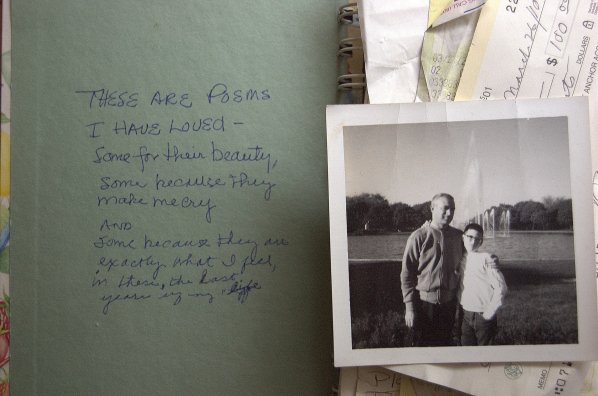 THESE ARE POEMS
I HAVE LOVED —
Some for their beauty,
Some because they
make me cry
AND
Some because they are
exactly what I feel,
in these, the last
years of my life
March 26
$ 100
DOLLARS
ANCHOR
MEMO